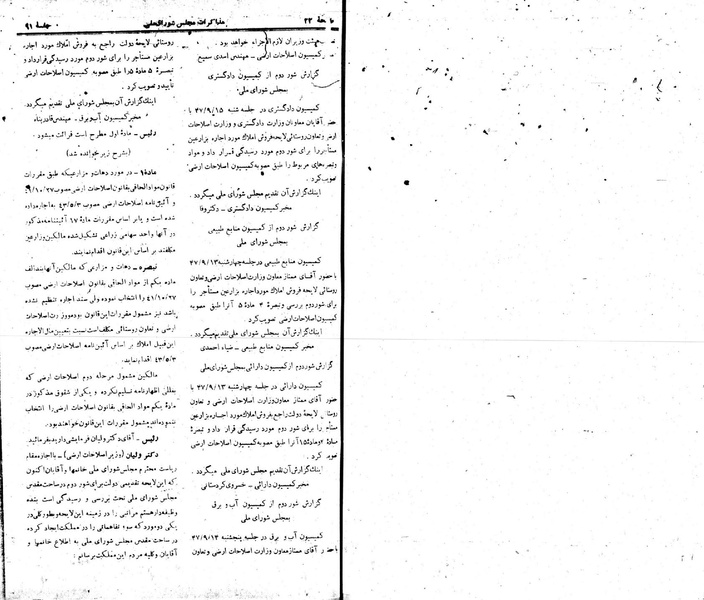 صفحهٔ ۲۲
مذاکرات مجلس شورایملی
جلسهٔ ۹۱
هیئت وزیران لازم‌الاجراء خواهد بود .
کمیسیون اصلاحات ارضی ـ مهندس اسدی سمیع
گزارش شور دوم از کمیسیون دادگستری
بمجلس شورای ملی
کمیسیون دادگستری در جلسه شنبه ۴۷/۹/۱۵ با
حضور آقایان معاونان وزارت دادگستری و وزارت اصلاحات
ارضی و تعاون روستائی لایحه فروش املاک مورد اجاره بزارعین
مستأجر را برای شور دوم مورد رسیدگی قرار داد و مواد
و تبصره‌های مربوط را طبق مصوبه کمیسیون اصلاحات ارضی
تصویب کرد .
اینک گزارش آن تقدیم مجلس شورای ملی میگردد .
مخبر کمیسیون دادگستری ـ دکتر وفا
گزارش شور دوم از کمیسیون منابع طبیعی
بمجلس شورای ملی
کمیسیون منابع طبیعی در جلسه چهارشنبه ۴۷/۹/۱۳
با حضور آقای ممتاز معاون وزارت اصلاحات ارضی و تعاون
روستائی لایحه فروش املاک مورد اجاره بزارعین مستأجر را
برای شور دوم بررسی و تبصرهٔ ۴ مادهٔ ۵ آنرا طبق مصوبه
کمیسیون اصلاحات ارضی تصویب کرد .
اینک گزارش آن بمجلس شورای ملی تقدیم میگردد .
مخبر کمیسیون منابع طبیعی ـ ضیاء احمدی
گزارش شور دوم از کمیسیون دارائی بمجلس شورای ملی
کمیسیون دارائی در جلسه چهارشنبه ۴۷/۹/۱۳ با
حضور آقای ممتاز معاون وزارت اصلاحات ارضی و تعاون
روستائی لایحه دولت راجع بفروش املاک مورد اجاره بزارعین
مستأجر را برای شور دوم مورد رسیدگی قرار داد و تبصرهٔ
مادهٔ ۲ و مادهٔ ۱۵ آنرا طبق مصوبه کمیسیون اصلاحات ارضی
تصویب کرد .
اینک گزارش آن تقدیم مجلس شورای ملی میگردد .
مخبر کمیسیون دارائی ـ خسروی کردستانی
گزارش شور دوم از کمیسیون آب و برق
بمجلس شورای ملی
کمیسیون آب و برق در جلسه پنجشنبه ۴۷/۹/۱۴
با حضور آقای ممتاز معاون وزارت اصلاحات ارضی و تعاون
روستائی لایحهٔ دولت راجع به فروش املاک مورد اجاره
بزارعین مستأجر را برای شور دوم مورد رسیدگی قرار داد و
تبصرهٔ ۵ مادهٔ ۵ را طبق مصوبه کمیسیون اصلاحات ارضی
تأیید و تصویب کرد .
اینک گزارش آن بمجلس شورای ملی تقدیم میگردد .
مخبر کمیسیون آب و برق ـ مهندس قادرپناه
رئیس ـ مادهٔ اول مطرح است قرائت میشود .
(بشرح زیر خوانده شد)
مادهٔ ۱ ـ در مورد دهات و مزارعیکه طبق مقررات
قانون مواد الحاقی بقانون اصلاحات ارضی مصوب ۴۱/۱۰/۲۷
و آئین‌نامه اصلاحات ارضی مصوب ۴۳/۵/۳ به اجاره داده
شده است و یا بر اساس مقررات مادهٔ ۱۷ آئیننامه مذکور
در آنها واحد سهامی زراعی تشکیل شده مالکین و زارعین
مکلفند بر اساس این قانون اقدام نمایند.
تبصره ـ دهات و مزارعی که مالکین آنها بند الف
ماده یکم از مواد الحاقی بقانون اصلاحات ارضی مصوب
۴۱/۱۰/۲۷ را انتخاب نموده ولی سند اجاره تنظیم نشده
باشد نیز مشمول مقررات این قانون بوده و وزارت اصلاحات
ارضی و تعاون روستائی مکلف است نسبت بتعیین مال‌الاجاره
این قبیل املاک بر اساس آئین‌نامه اصلاحات ارضی مصوب
۴۳/۵/۳ اقدام نماید.
مالکین مشمول مرحله دوم اصلاحات ارضی که
بعللی اظهارنامه تسلیم نکرده و یکی از شقوق مذکور در
مادهٔ یکم مواد الحاقی بقانون اصلاحات ارضی را انتخاب
ننموده‌اند مشمول مقررات این قانون خواهند بود.
رئیس ـ آقای دکتر ولیان فرمایشی دارید بفرمائید.
دکتر ولیان (وزیر اصلاحات ارضی) ـ با اجازه مقام
ریاست محترم مجلس شورای ملی خانمها و آقایان اکنون
که این لایحه تقدیمی دولت برای شور دوم در ساحت مقدس
مجلس شورای ملی تحت بررسی و رسیدگی است بنده
وظیفه‌دار هستم مراتبی را در زمینه این لایحه و بطور کلی در
یکی دو مورد که سوء تفاهماتی را در مملکت ایجاد کرده
در ساحت مقدس مجلس شورای ملی به اطلاع خانمها و
آقایان و کلیه مردم این مملکت برسانم :